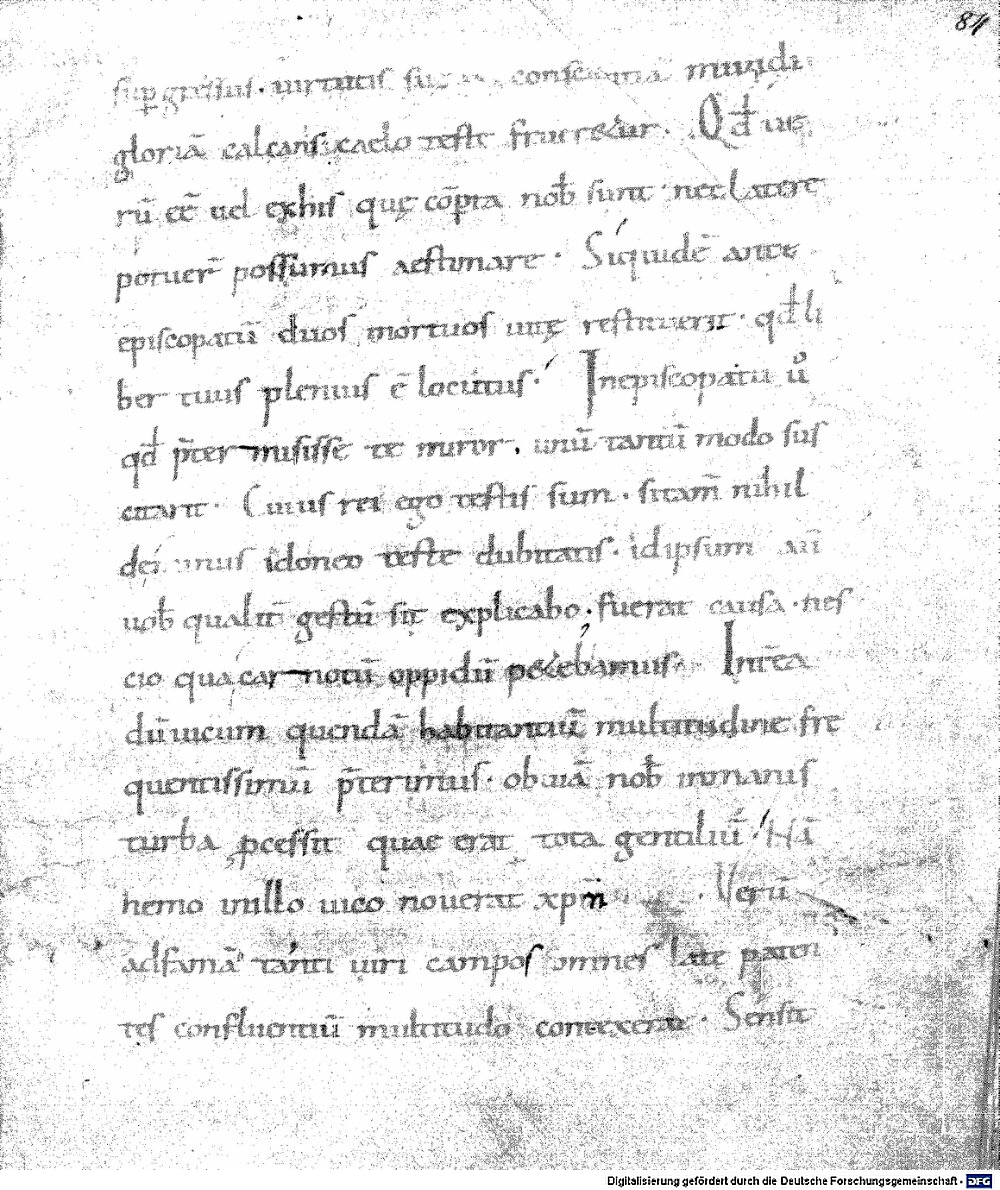 84
sup̱gressus. uirtutis suę conscientia mundi
gloriā calcans. caelo teste frueretur. Qd̄ ue
rū eē uel exhis quę cōpta nob̄ sunt. nec latere
potuer̄ possumus aestimare. Siquidē ante
episcopatū duos mortuos uitę restituerit. qd̄ li
ber tuus plenius ē locutus. Inepiscopatu ů
qd̄ p̄termisisse te miror, unū tantū modo sus
citarit. Cuius rei ego testis sum. sitam̄ nihil
de idoneo teste dubitatis. idipsum
uob̄ qualit̄ gestū sit explicabo. fuerat causa. nes
cio qua carnotū oppidū petebamus. Intēa
dū uicum quendā habitantiū multitudine fre
quentissimū p̄terimus. obuiā nob̄ inmanis
turba p̱cessit quae erat tota gentiliū. Nā
nemo inillo uico nouerat xpm̄. Verū
adfamā tanti uiri campos omnes late paten
tes confluentiū multitudo contexerat. Sensit
Digitalisierung gefördert durch die Deutsche Forschungsgemeinschaft - DFG